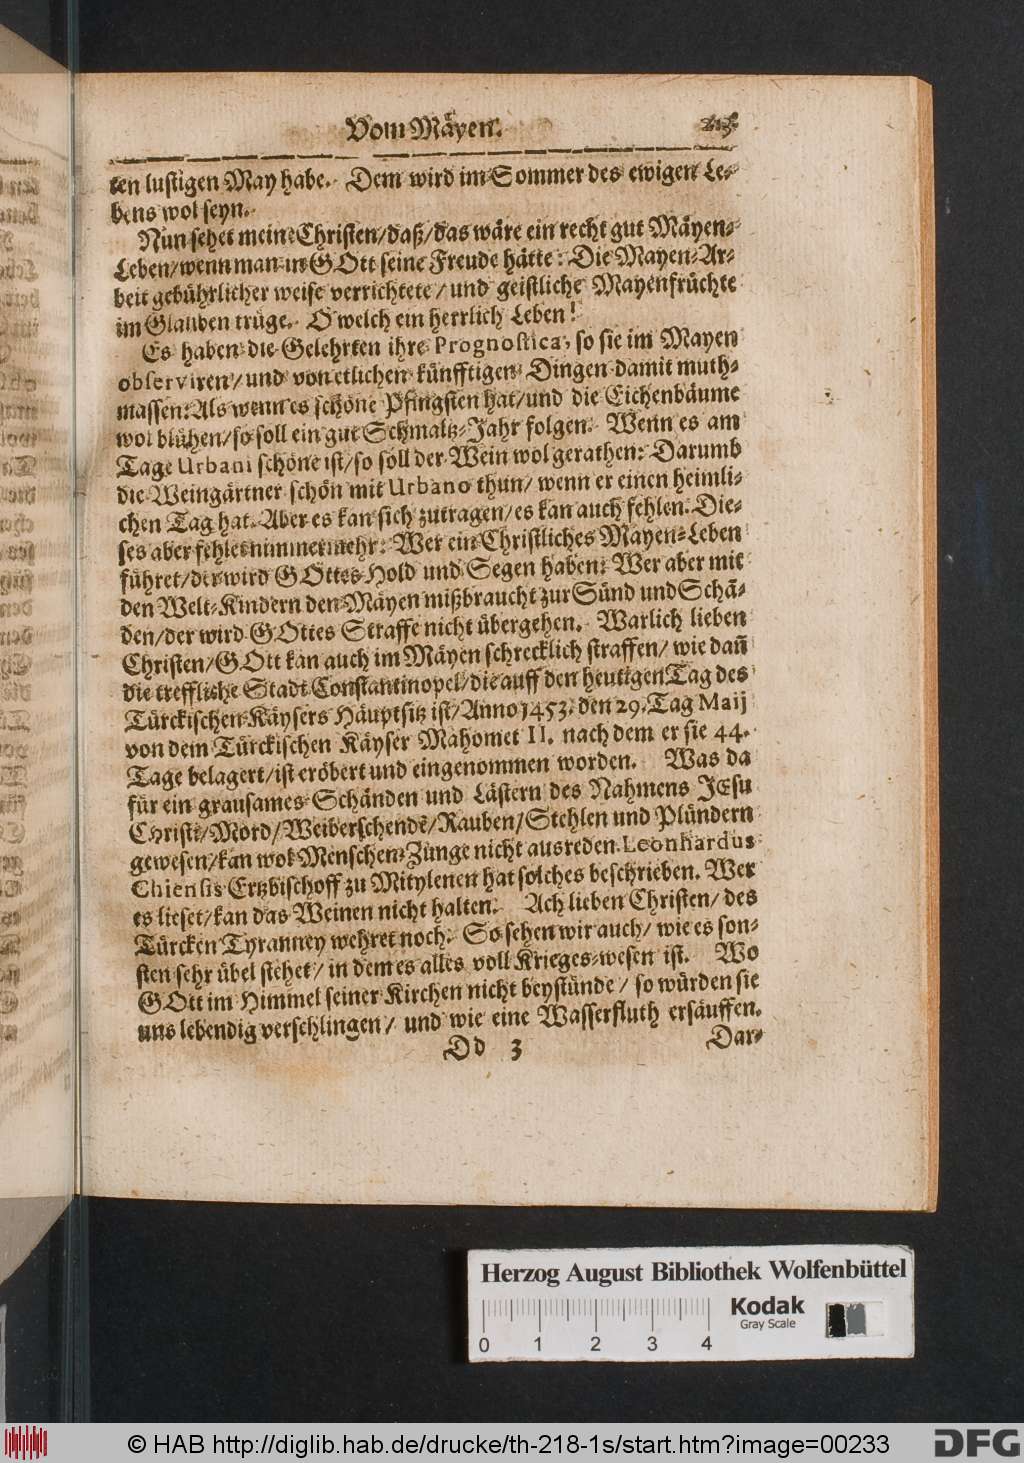 Vom Mäyen. 213.
ten lustigen May habe. Dem wird im Sommer des ewigen Le-
bens wol seyn.
Nun sehet meine Christen/daß/das wäre ein recht gut Mäyen-
Leben/wenn man in GOtt seine Freude hätte: Die Mayen-Ar-
beit gebührlicher weise verrichtete/ und geistliche Mayenfrüchte
im Glauben trüge. O welch ein herrlich Leben!
Es haben die Gelehrten ihre Prognostica, so sie im Mayen
observiren/ und von etlichen künfftigen Dingen damit muth-
massen: Als wenn es schöne Pfingsten hat/und die Eichenbäume
wol blühen/so soll ein gut Schmaltz-Jahr folgen. Wenn es am
Tage Urbani schöne ist/so soll der Wein wol gerathen: Darumb
die Weingärtner schön mit Urbano thun/ wenn er einen heimli-
chen Tag hat. Aber es kan sich zutragen/es kan auch fehlen. Die-
ses aber fehlet nimmermehr: Wer ein Christliches Mayen-Leben
führet/der wird GOttes Hold und Segen haben: Wer aber mit
den Welt-Kindern den Mäyen mißbraucht zur Sünd und Schã-
den/der wird GOttes Straffe nicht übergehen. Warlich lieben
Christen/GOtt kan auch im Mäyen schrecklich straffen/ wie dañ
die treffliche Stadt Constantinopel/die auff den heutigen Tag des
Türckischen Käysers Häuptsitz ist/Anno 1453. den 29. Tag Maij
von dem Türckischen Käyser Mahomet II. nach dem er sie 44.
Tage belagert/ist eröbert und eingenommen worden. Was da
für ein grausames Schänden und Lästern des Nahmens JEsu
Christi/Mord/Weiberschendẽ/Rauben/Stehlen und Plündern
gewesen/kan wol Menschen-Zunge nicht ausreden. Leonhardus
Chiensis Ertzbischoff zu Mitylenen hat solches beschrieben. Wer
es lieset/kan das Weinen nicht halten. Ach lieben Christen/ des
Türcken Tyranney wehret noch. So sehen wir auch/ wie es son-
sten sehr übel stehet/ in dem es alles voll Krieges-wesen ist. Wo
GOtt im Himmel seiner Kirchen nicht beystünde/ so würden sie
uns lebendig verschlingen/ und wie eine Wasserfluth ersäuffen.
Dd 3 Dar-
Herzog August Bibliothek Wolfenbüttel
Kodak
Gray Scale
0 1 2 3 4
© HAB http://diglib.hab.de/drucke/th-218-1s/start.htm?image=00233
DFG